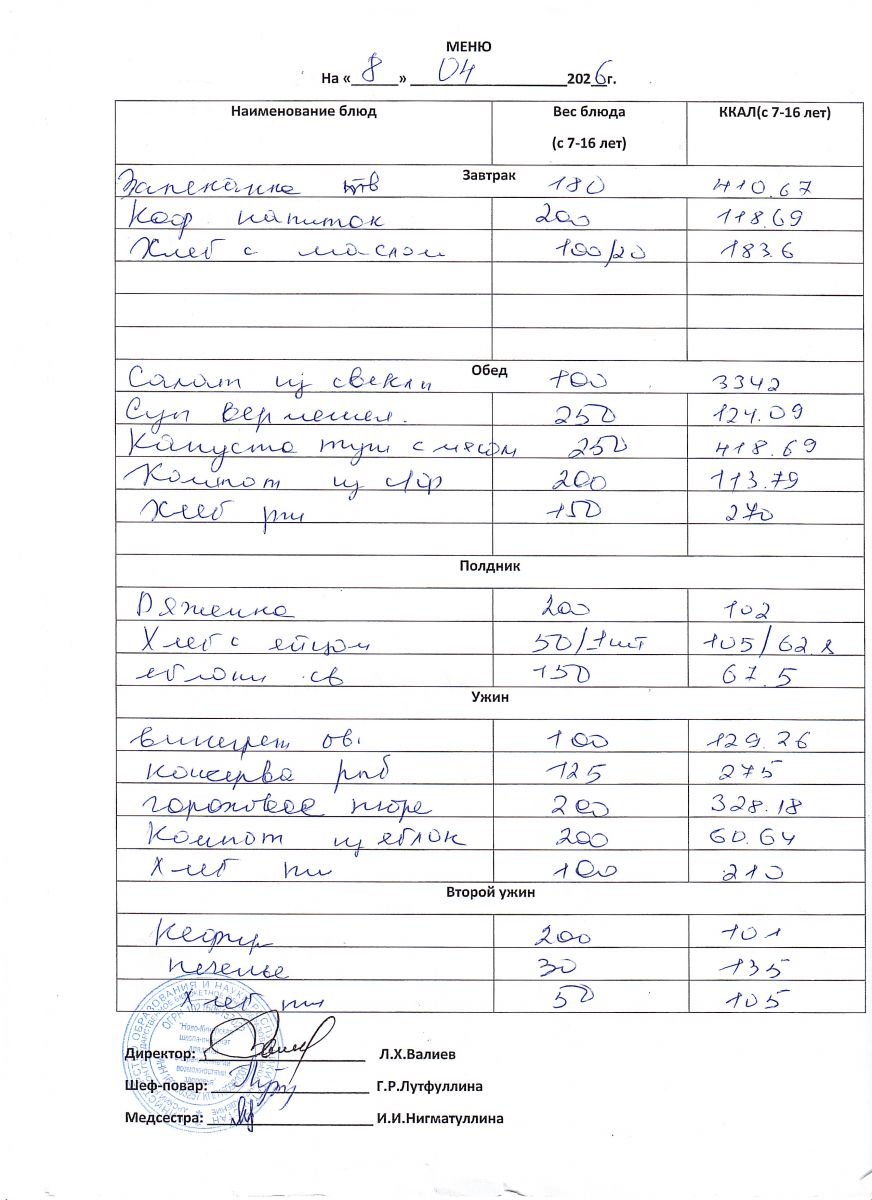 МЕНЮ
На « 8 » 04 2026г.
Наименование блюд Вес блюда (с 7-16 лет) ККАЛ(с 7-16 лет)
Завтрак
Запеканка тв 180 410.67
Коф напиток 200 118.69
Хлеб с маслом 100/20 183.6
Обед
Салат из свеклы 100 3342
Суп вермешел. 250 124.09
Капуста туш с мясом 250 418.69
Компот из с/ф 200 113.79
Хлеб рж 150 270
Полдник
Ряженка 200 102
Хлеб с яйцом 50/1шт 105/62.8
яблоки св 150 67.5
Ужин
винегрет ов. 100 129.26
консерва рыб 125 275
гороховое пюре 200 328.18
Компот из яблок 200 60.64
Хлеб пш 100 210
Второй ужин
Кефир 200 101
печенье 30 135
Хлеб пш 50 105
Директор: Л.Х.Валиев
Шеф-повар: Г.Р.Лутфуллина
Медсестра: И.И.Нигматуллина